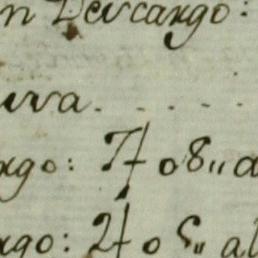 n Descargo:
uva. . . . .
rgo: 7f 08,, a
rgo: 2f 05,, al